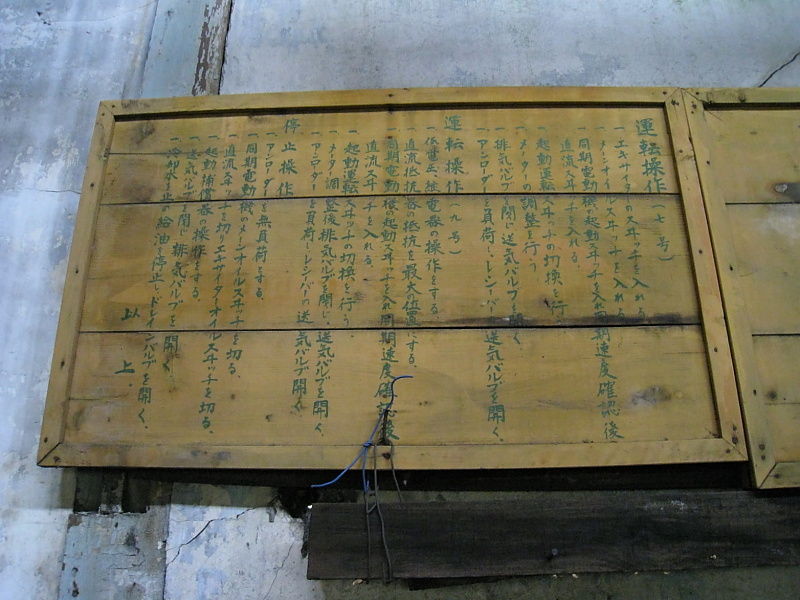 運転操作（七号）
一エキサイターのスヰッチを入れる
一メーンオイルスヰッチを入れる
一同期電動機の起動スヰッチを入れ同期速度確認後
直流スヰッチを入れる。
一起動運転スヰッチの切換を行う
一メーターの調整を行う
一排気バルブを閉じ送気バルブを開く
一アンローダーを負荷し、レシーバー送気バルブを開く、
運転操作（九号）
操作をする。
一直流抵抗器の抵抗を最大の位置にする。
一同期電動機の起動スヰッチを入れ同期速度確認後
直流スヰッチを入れる。
一起動運転スヰッチの切換を行う。
一メーター調整後排気バルブを閉じ、送気バルブを開く、
一アンローダーを負荷し、レシーバーの送気バルブ開く、
停止操作
一アンローダーを無負荷とする。
一同期電動機のメーンオイルスヰッチを切る、
一直流スヰッチを切りエキサイターオイルスヰッチを切る、
一起動補償器の操作をする、
一送気バルブを閉じ排気バルブを開く、
一冷却水止め給油を停止しドレインバルブを開く、
以上.